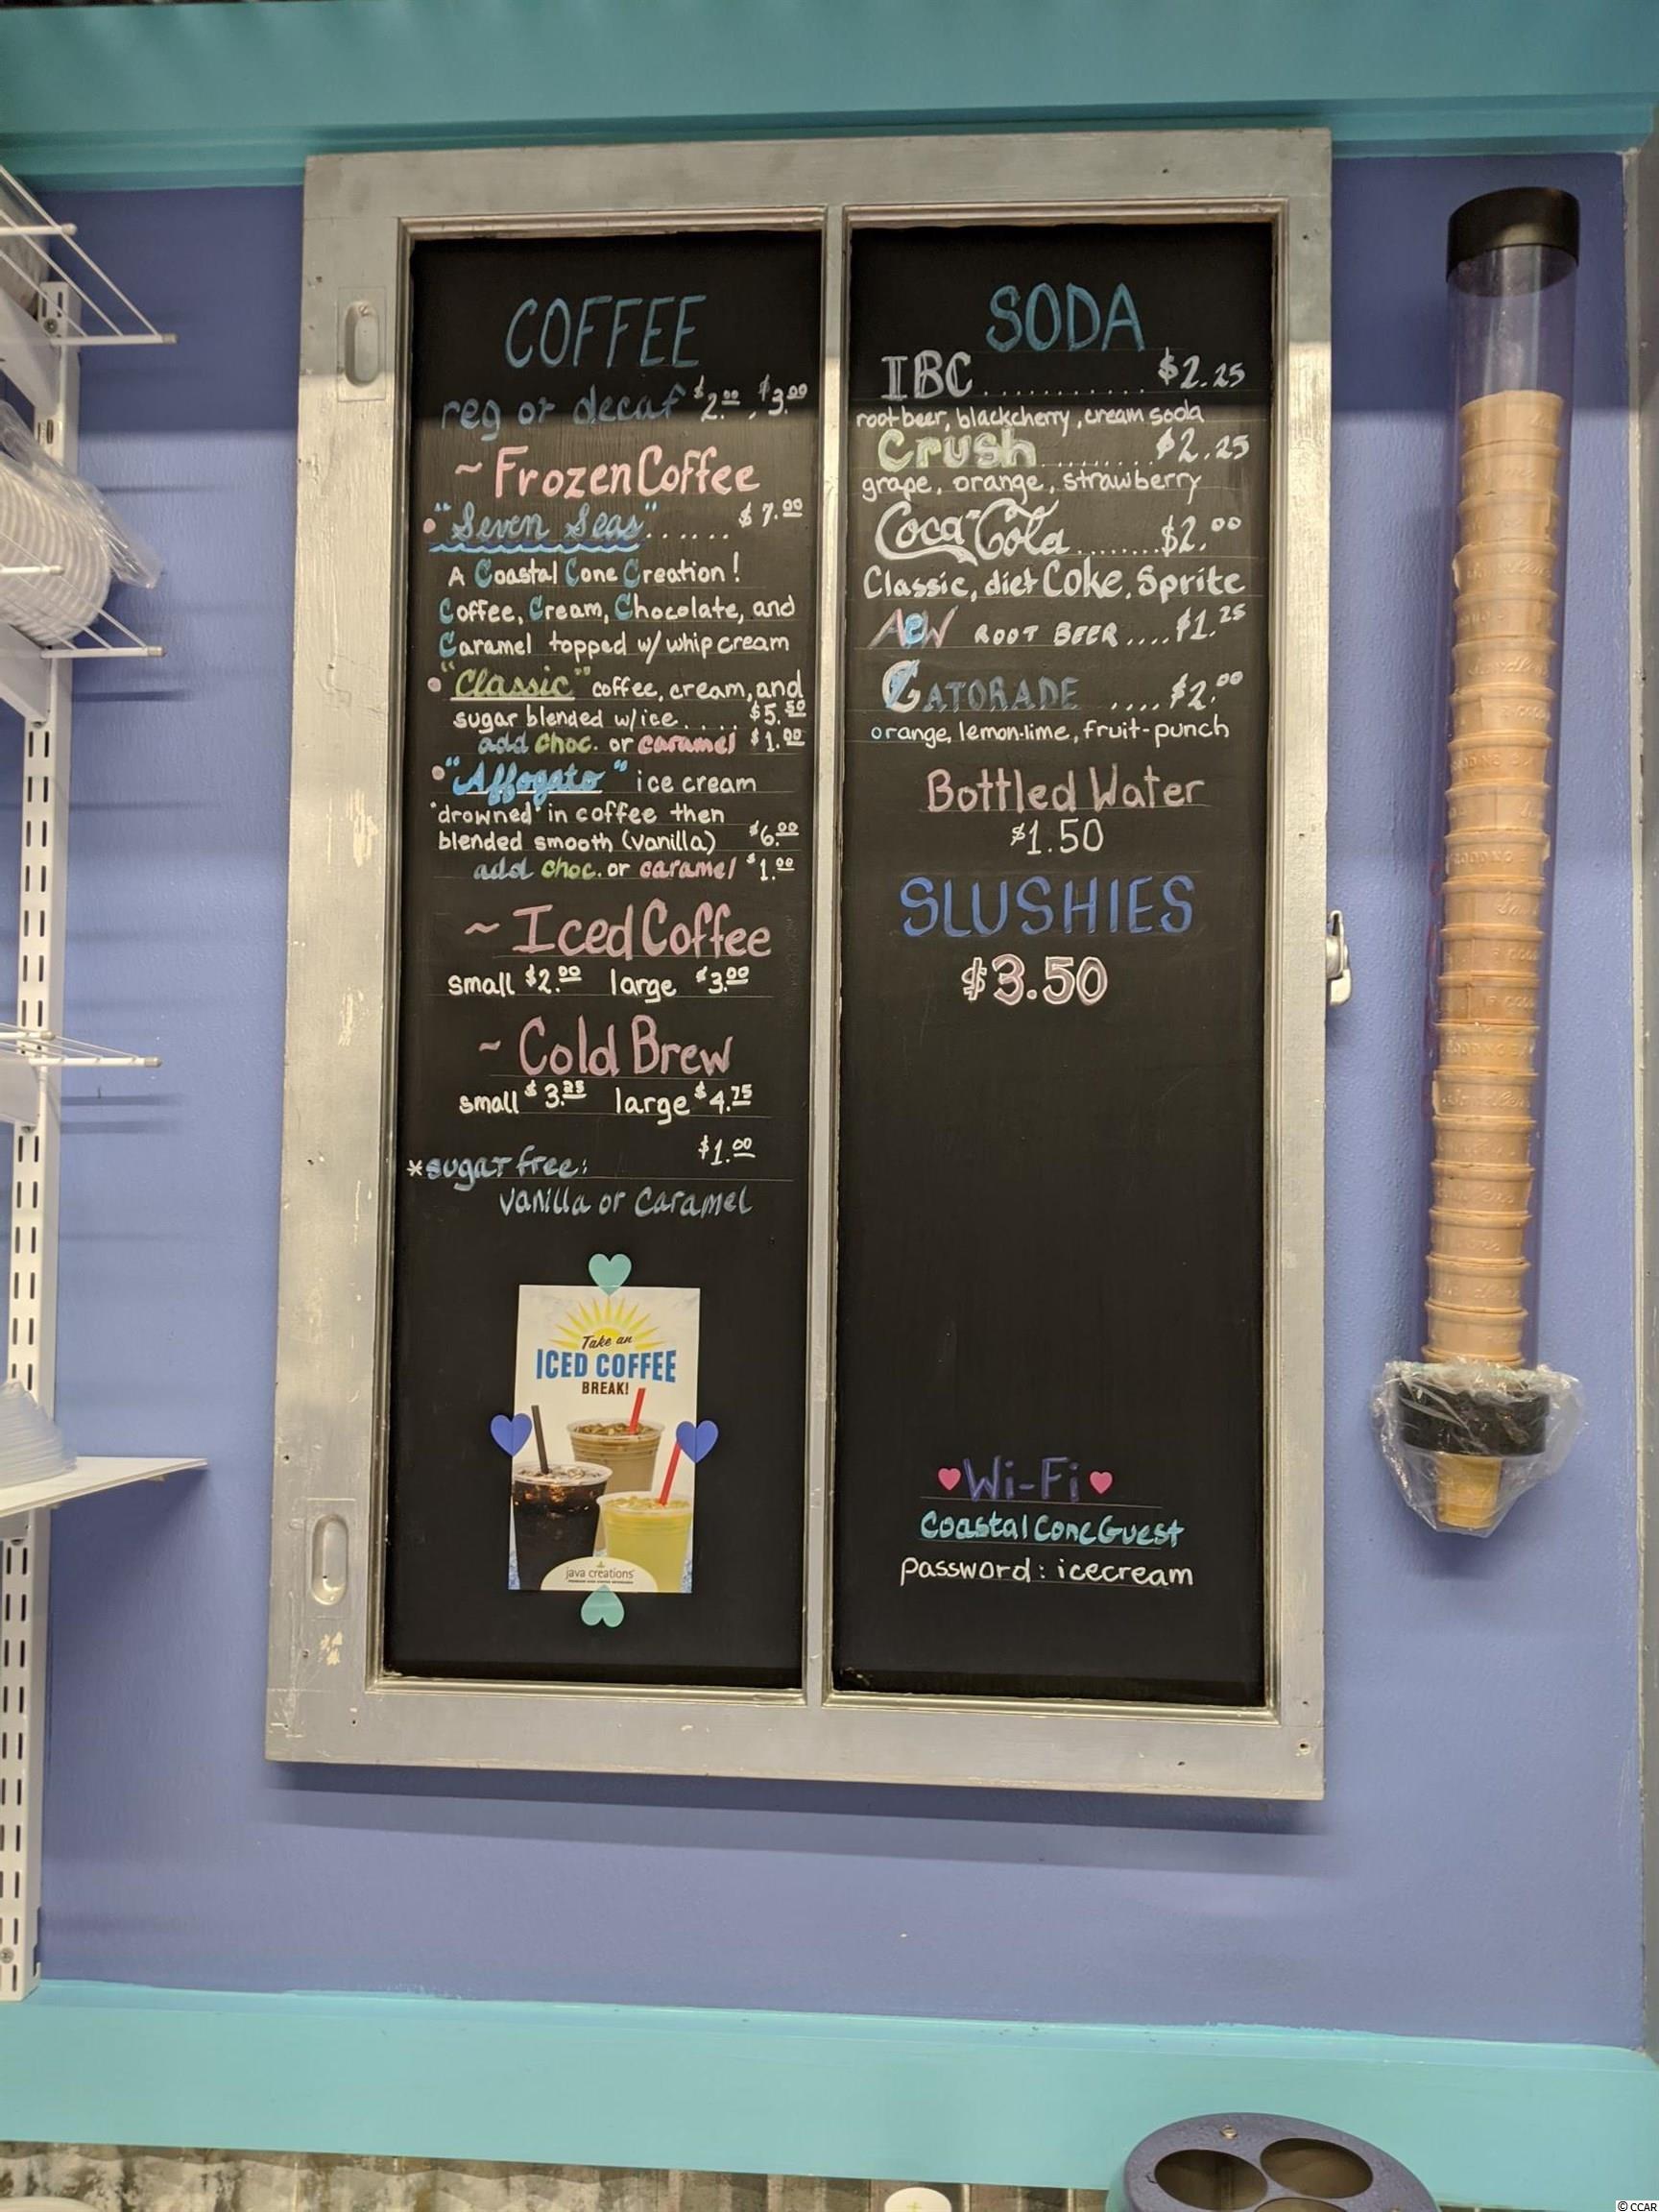 COFFEE
reg or decaf $2.00, $3.00
~ Frozen Coffee
"Seven Seas" ...... $7.00
A Coastal Cone Creation!
Coffee, Cream, Chocolate, and
Caramel topped w/ whip cream
"Classic" coffee, cream, and
sugar blended w/ice .... $5.50
add choc. or caramel $1.00
"Affogato" ice cream
"drowned" in coffee then
blended smooth (vanilla) $6.00
add choc. or caramel $1.00
~ Iced Coffee
small $2.00 large $3.00
~ Cold Brew
small $3.25 large $4.75
$1.00
*sugar free:
vanilla or caramel
Take an
ICED COFFEE
BREAK!
java creations
SODA
IBC ............ $2.25
root beer, blackcherry, cream soda
Crush ........ $2.25
grape, orange, strawberry
Coca-Cola ....... $2.00
Classic, diet Coke, Sprite
A&W ROOT BEER .... $1.25
GATORADE .... $2.00
orange, lemon-lime, fruit-punch
Bottled Water
$1.50
SLUSHIES
$3.50
Wi-Fi
CoastalConeGuest
password: icecream
© CCAR